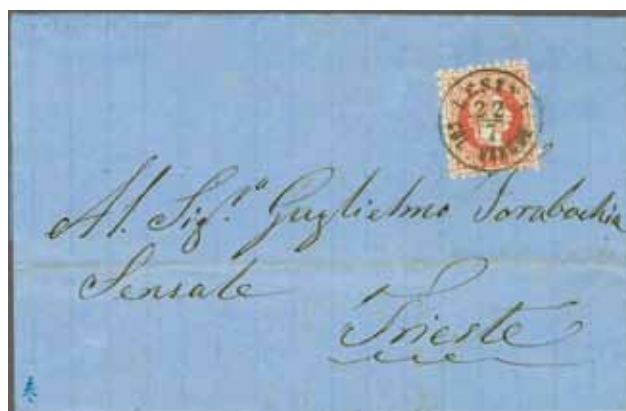 LESINA
22
7
COL VAPORE
Al. Sig.ro Guglielmo Torabochia
Sensale
Trieste